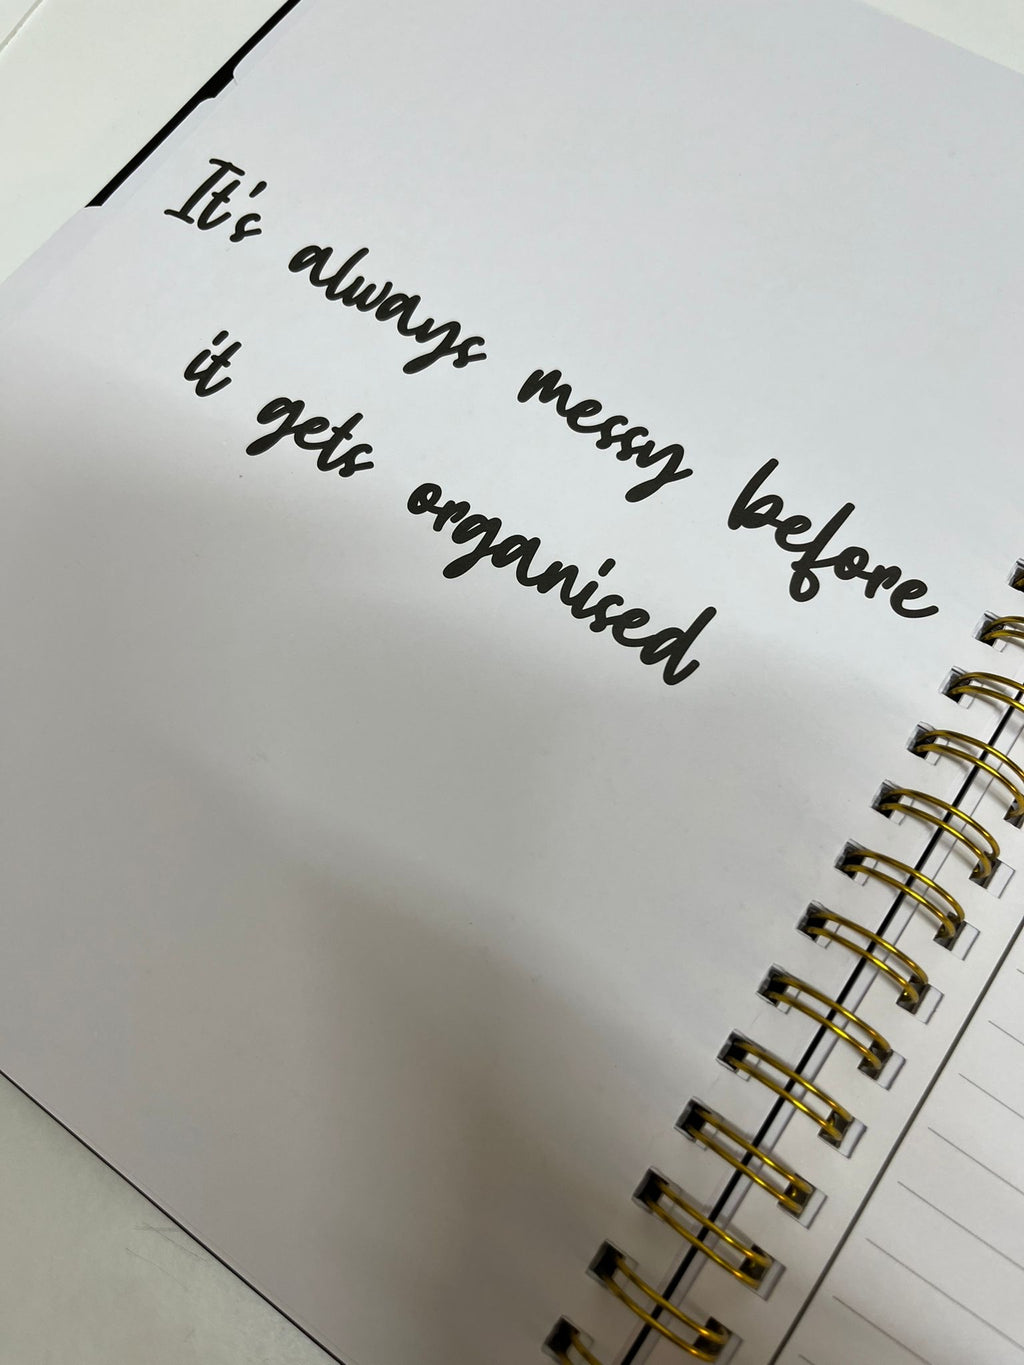 It's always messy before
it gets organised